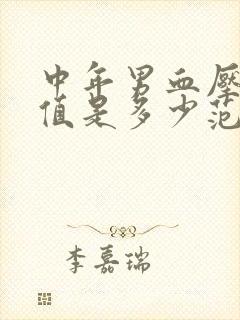 中年男血壓
值是多少范
李嘉瑞